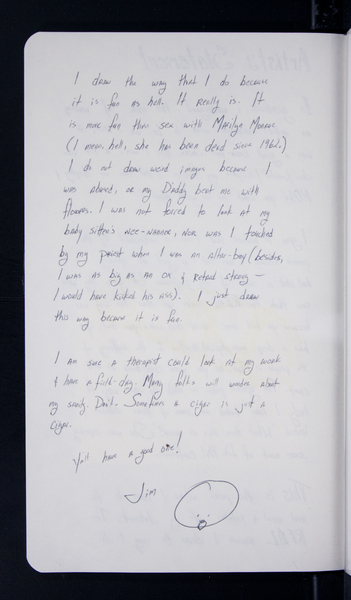 I draw the way that I do because
it is fun as hell. It really is. It
is more fun than sex with Marilyn Monroe
(I mean hell, she has been dead since 1962.)
I do not draw weird images because I
was abused, or my Daddy beat me with
flowers. I was not forced to look at my
baby sitter's nice-nannor, nor was I touched
by my priest when I was an alter-boy (besides,
I was as big as an ox & retard strong –
I would have kicked his ass). I just draw
this way because it is fun.
I am sure a therapist could look at my work
& have a field-day. Many folks will wonder about
my sanity. Don't. Sometimes a cigar is just a
cigar.
Y'all have a good one!
Jim